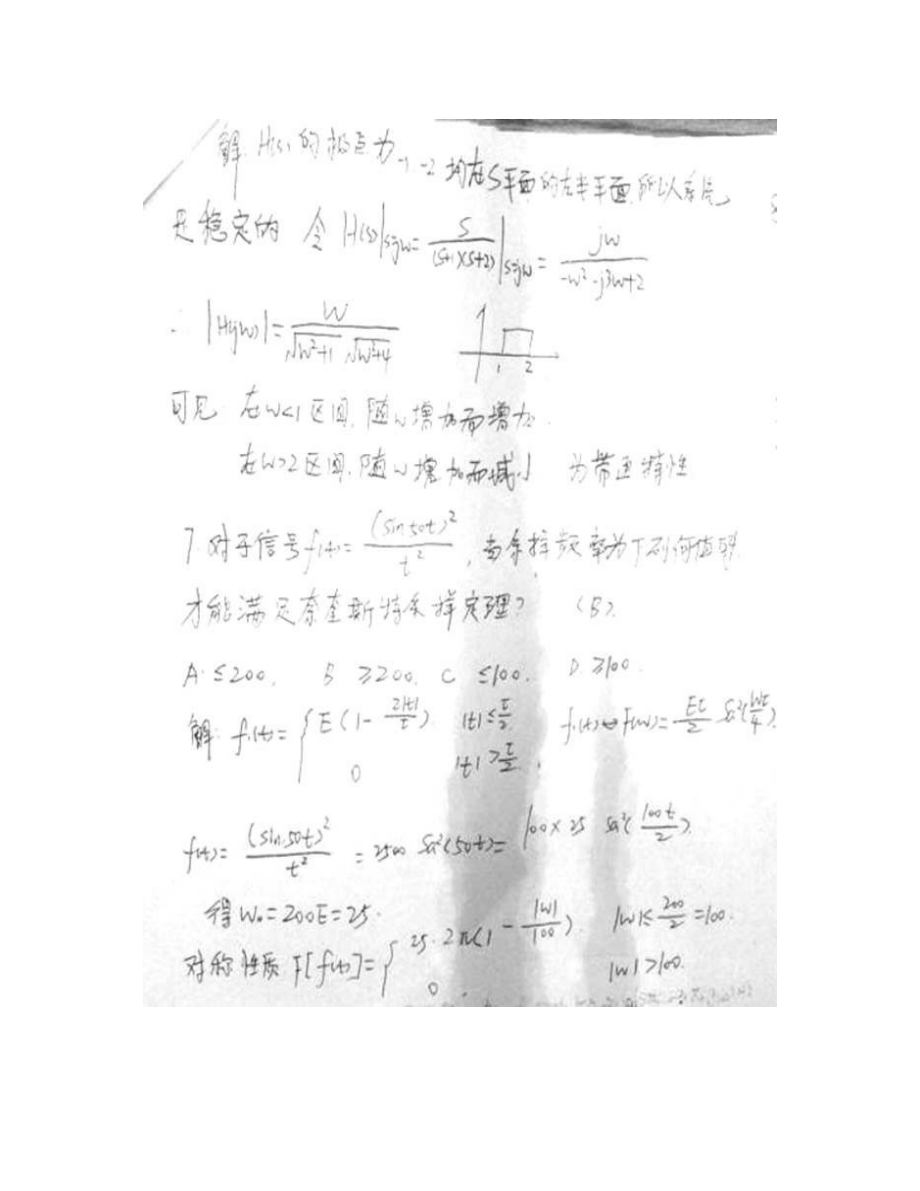 解: H(s)的极点为 -1 -2 均在S平面的左半平面,所以系统
是稳定的 令 H(s)|s=jw = S/((S+1)(S+2))|s=jw = jw/(-w²-j3w+2)
∴ |H(jw)| = w/(√w²+1 √w²+4) 1 2
可见 在w<1区间,随w增加而增加.
在w>2区间,随w增加而减小 为带通特性
7.对于信号f(t)=(sin50t)²/t²,当采样频率为下列何值时,
才能满足奈奎斯特采样定理? (B).
A.≤200. B ≥200. C ≤100. D.≥100.
解: f₁(t)={E(1-2|t|/τ) |t|≤τ/2 f₁(t)↔F(w)=Eτ/2 Sa²(wτ/4)
0 |t|>τ/2.
f(t)=(sin50t)²/t² =2500 Sa²(50t)=100×25 Sa²(100t/2).
得 W₀=200 E=25.
对称性质 F[f(t)]={25·2π(1-|w|/100) |w|≤200/2=100.
0. |w|>100.